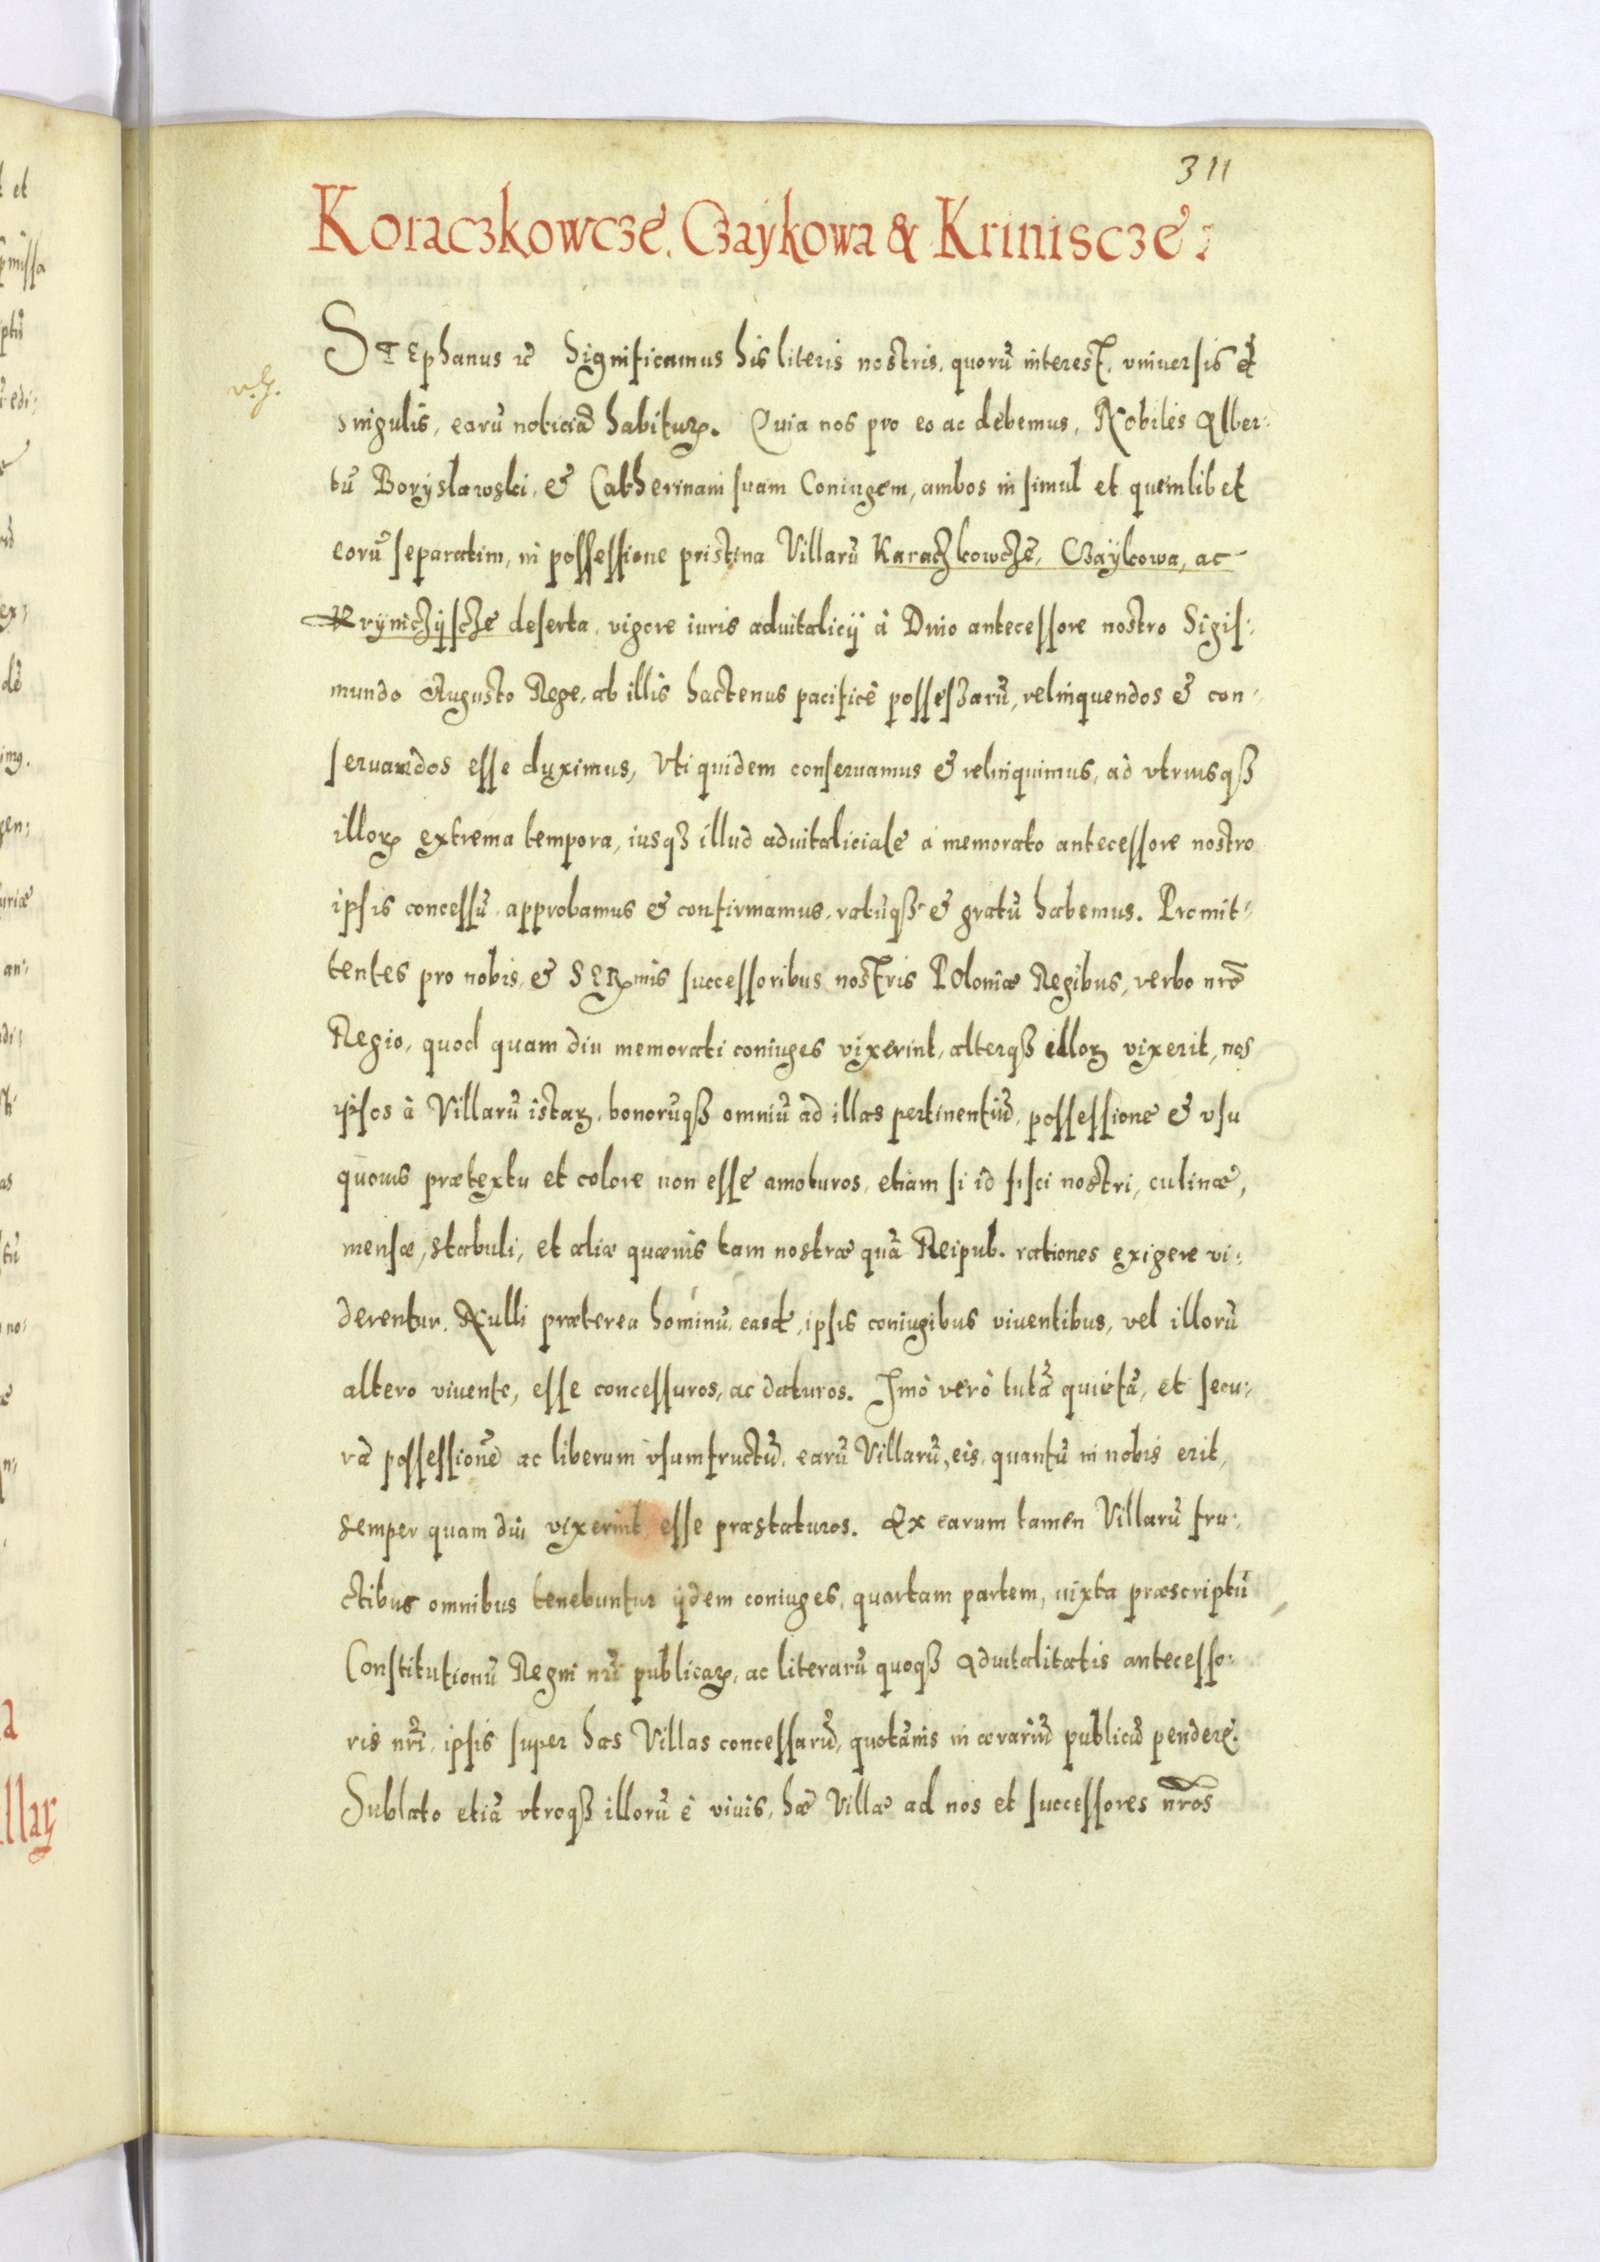 311
Koraczkowcze, Czaÿkowa & Kriniscze:
v. g.
STEphanus etc Significamus his literis nostris, quorũ interest, vniuersis et
singulis, earũ noticiã habituꝝ. Quia nos pro eo ac debemus, Nobiles Alber-
tũ Borÿslawski, & Catherinam suam Coniugem, ambos in simul et quemlibet
eorũ separatim, in possessione pristina Villarũ Karaczkowcze, Czaÿkowa, ac
Krÿniczÿscze deserta, vigore iuris aduitalicÿ à Dnio antecessore nostro Sigis-
mundo Augusto Rege, ab illis hactenus pacificè possessarũ, relinquendos & con-
seruandos esse duximus, Vti quidem conseruamus & relinquimus, ad vtriusqꝫ
illoꝝ extrema tempora, iusqꝫ illud aduitaliciale à memorato antecessore nostro
ipsis concessũ, approbamus & confirmamus, ratũqꝫ & gratũ habemus. Promit-
tentes pro nobis, & SERmis successoribus nostris Poloniæ Regibus, verbo nrõ
Regio, quod quam diu memorati coniuges vixerint, alterqꝫ illoꝝ vixerit, nos
ipsos à Villarũ istaꝝ, bonorũqꝫ omniũ ad illas pertinentiũ, possessione & vsu
quouis prætextu et colore non esse amoturos, etiam si id fisci nostri, culinæ,
mensæ, stabuli, et aliæ quæuis tam nostræ quã Reipub. rationes exigere vi-
derentur. Nulli præterea hominũ, easdẽ, ipsis coniugibus viuentibus, vel illorũ
altero viuente, esse concessuros, ac daturos. Imò verò tutã quietã, et secu-
rã possessionẽ ac liberum vsumfructũ, earũ Villarũ, eis, quantũ in nobis erit,
semper quam diu vixerint, esse præstaturos. Ex earum tamen Villarũ fru-
ctibus omnibus tenebuntur ÿdem coniuges, quartam partem, iuxta præscriptũ
Constitutionũ Regni nri publicaꝝ, ac literarũ quoqꝫ Aduitalitatis antecesso-
ris nri, ipsis super has Villas concessarũ, quotãnis in ærariũ publicũ pendere.
Sublato etiã vtroqꝫ illorũ è viuis, hæ Villæ ad nos et successores nros